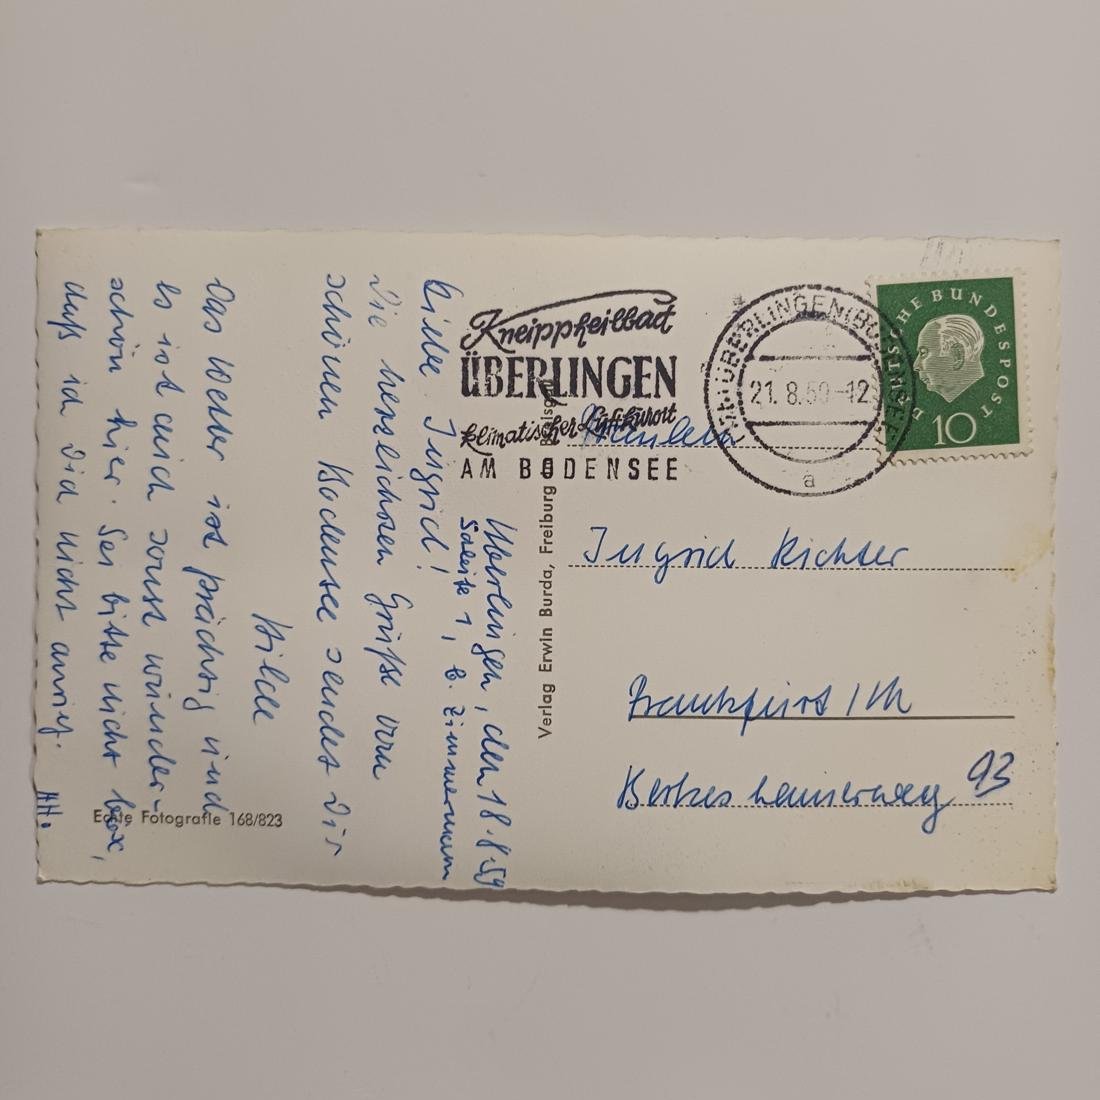 Überlingen, den 18.8.59
b. Zimmermann
Liebe Ingrid!
Die herzlichsten Grüße vom
schönen Bodensee sendet Dir
Hilde
Das Wetter ist prächtig und
es ist auch sonst wunder-
schön hier. Sei bitte nicht
daß ich Dich nicht anrief.
HH.
Echte Fotografie 168/823
Verlag Erwin Burda, Freiburg
Kneippheilbad
ÜBERLINGEN
klimatischer Luftkurort
AM BODENSEE
ÜBERLINGEN
21.8.59-12
a
DEUTSCHE BUNDESPOST
10
Fräulein
Ingrid Richter
Frankfurt / M
93